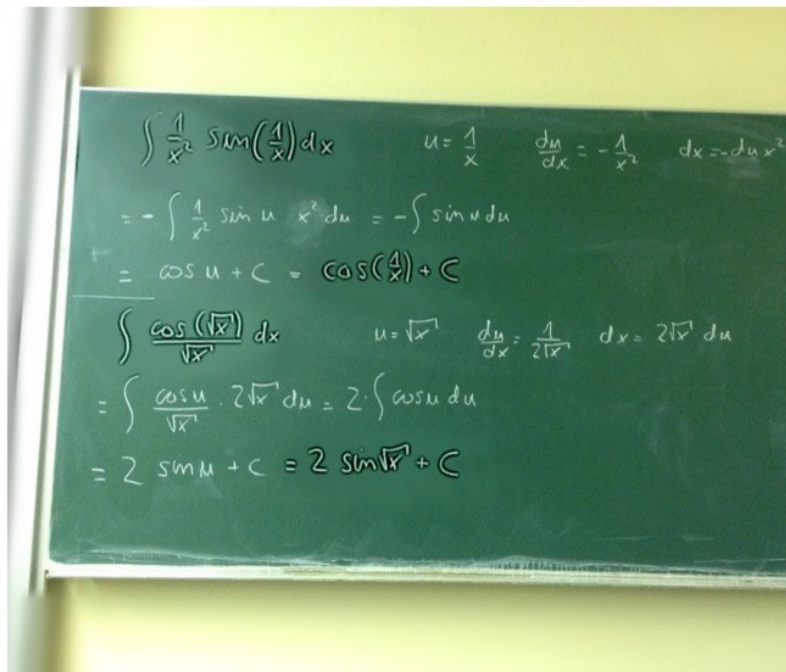 ∫ 1/x² sin(1/x) dx u = 1/x du/dx = -1/x² dx = -du x²
= - ∫ 1/x² sin u x² · du = - ∫ sin u du
= cos u + C = cos(1/x) + C
∫ cos(√x)/√x dx u = √x du/dx = 1/2√x dx = 2√x du
= ∫ cos u/√x · 2√x du = 2 · ∫ cos u du
= 2 sin u + C = 2 sin√x + C